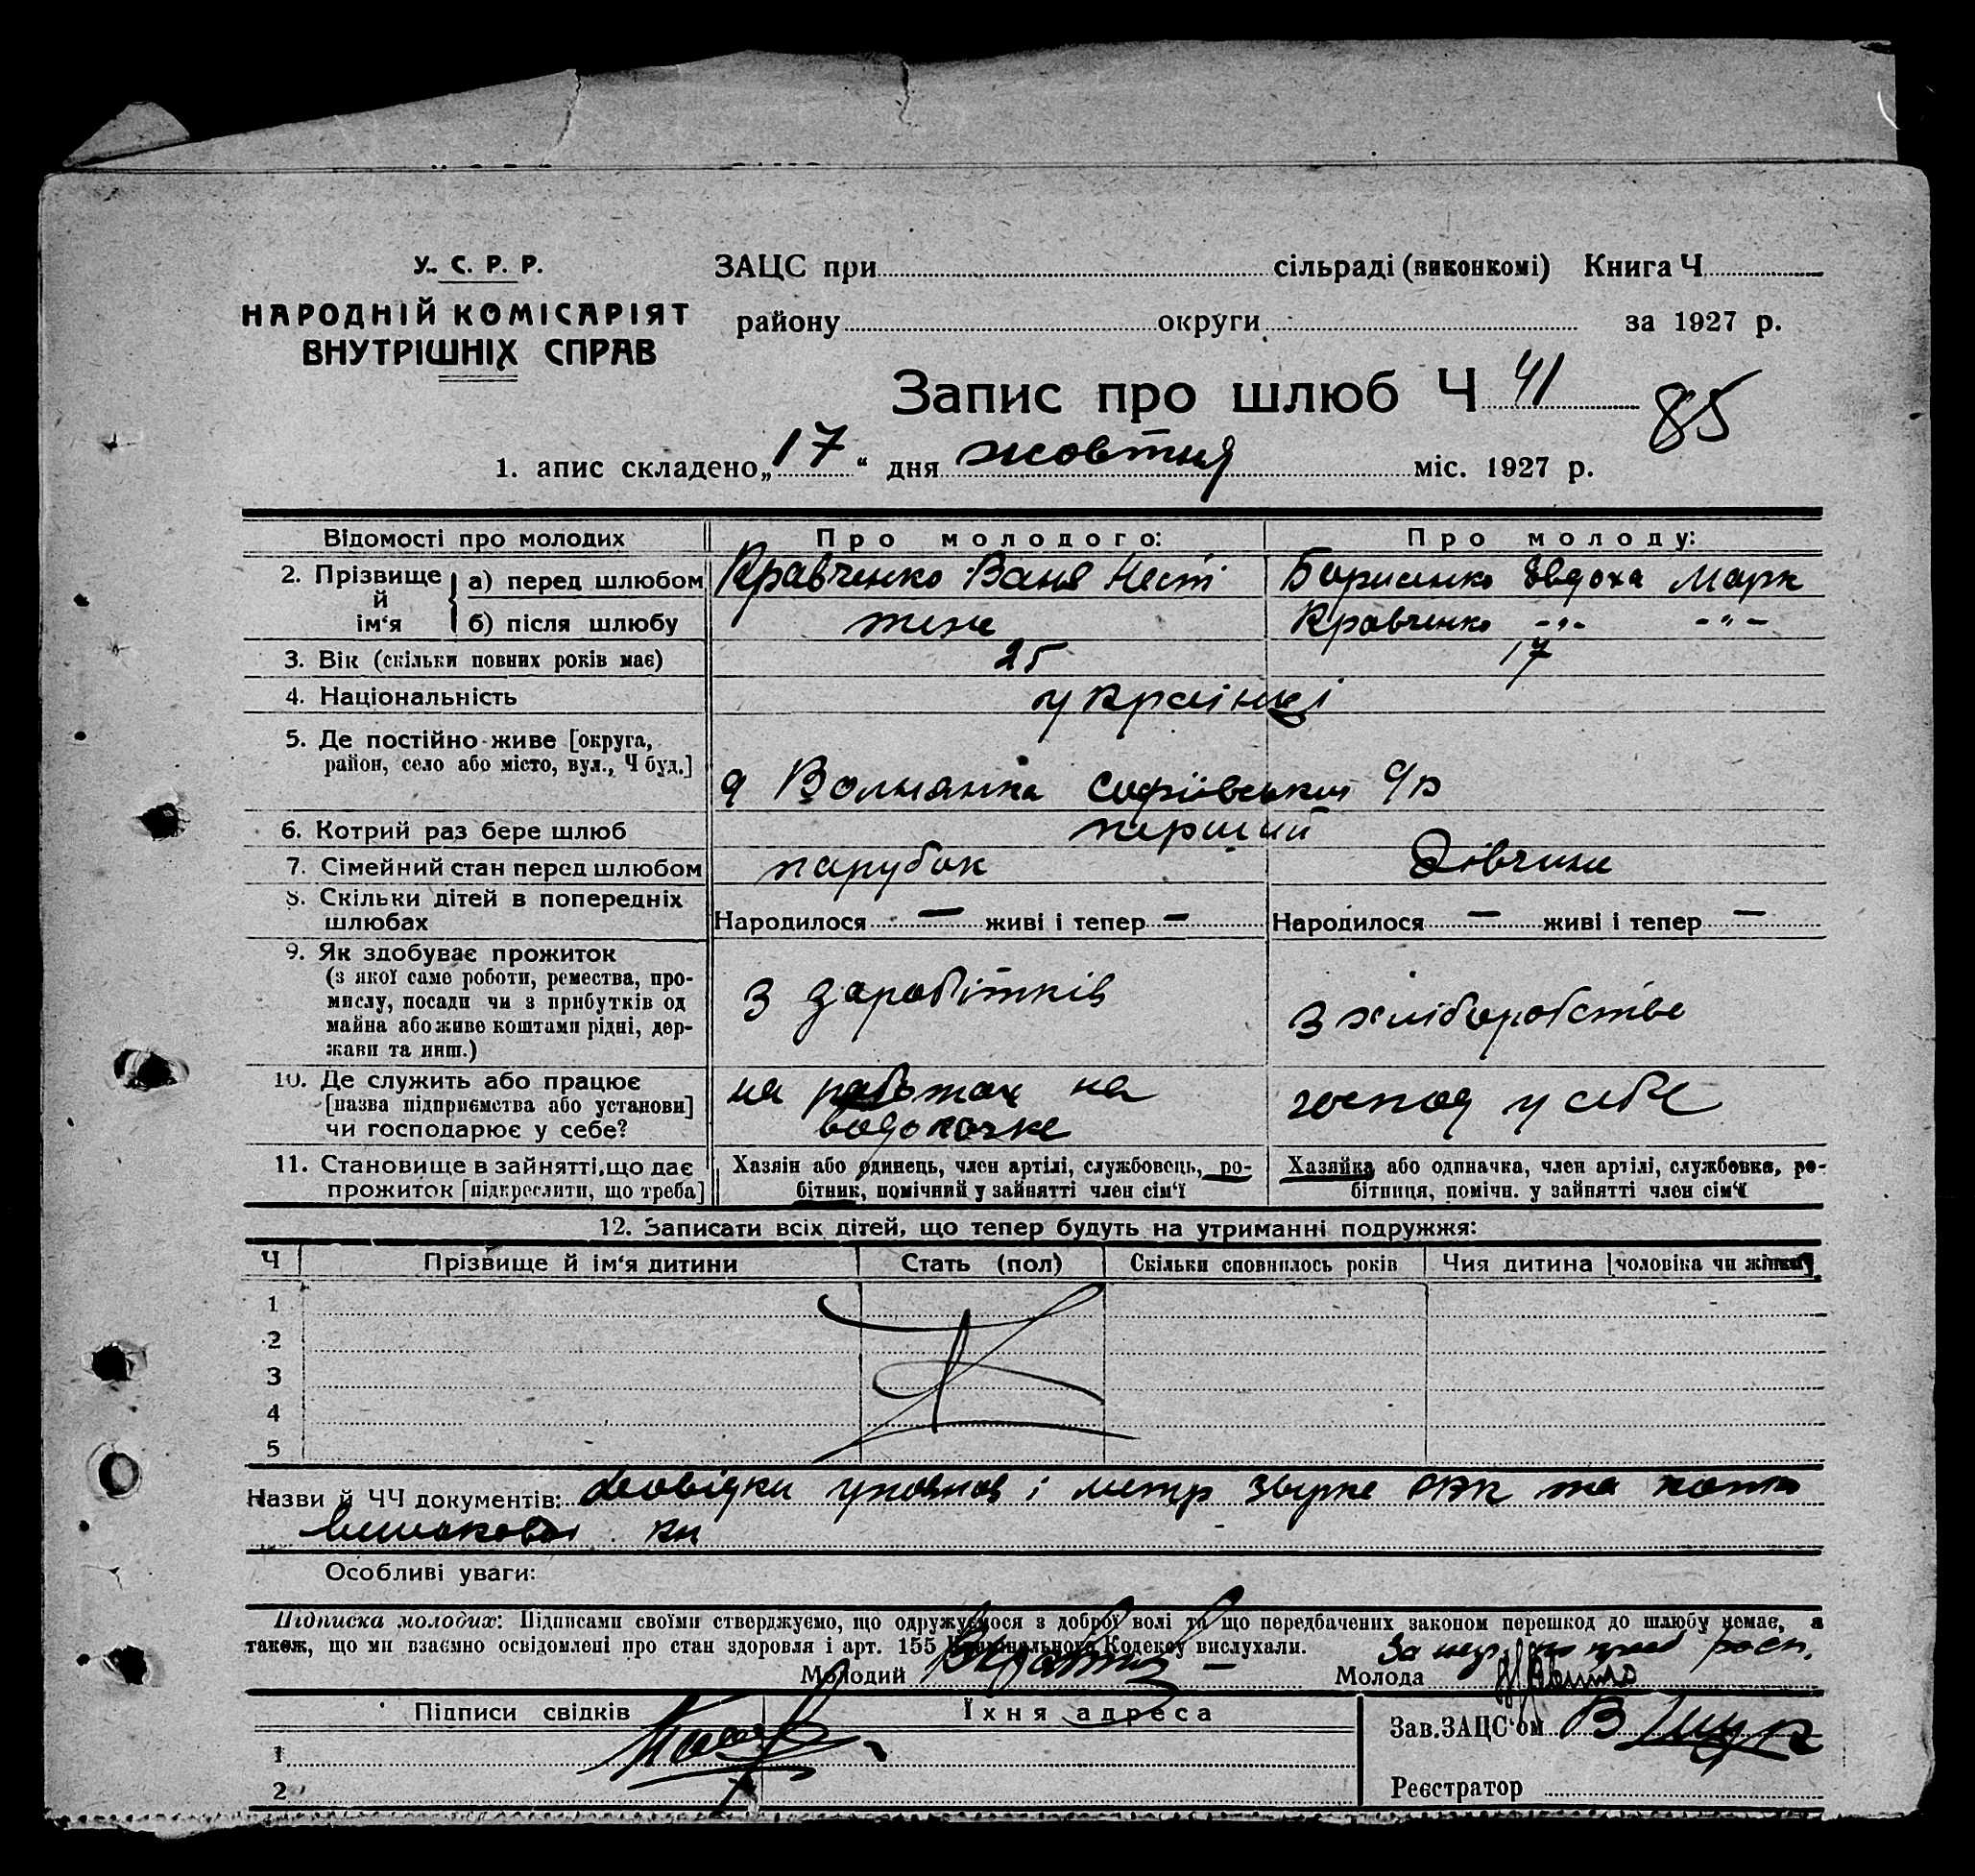 У. С. Р. Р.
НАРОДНІЙ КОМІСАРІЯТ
ВНУТРІШНІХ СПРАВ
ЗАЦС при сільраді (виконкомі) Книга Ч
району округи за 1927 р.
Запис про шлюб Ч 41
85
1. апис складено „17“ дня жовтня міс. 1927 р.
Відомості про молодих Про молодого: Про молоду:
2. Прізвище й ім‘я а) перед шлюбом Кравченко Ваня Нест Борисенко Евдоха Марк
б) після шлюбу теж Кравченко -„- -„-
3. Вік (скільки повних років має) 25 17
4. Національність українці
5. Де постійно живе [округа,
район, село або місто, вул., Ч буд.]
Софіївський с/р
6. Котрий раз бере шлюб перший
7. Сімейний стан перед шлюбом парубок Дівчина
8. Скільки дітей в попередніх
шлюбах
Народилося — живі і тепер — Народилося — живі і тепер —
9. Як здобуває прожиток
(з якої саме роботи, ремества, про-
мислу, посади чи з прибутків од
майна або живе коштами рідні, дер-
жави та инш.)
з заробітків з хліборобства
10. Де служить або працює
[назва підприємства або установи]
чи господарює у себе?
на работах на
водокачке
господ у себе
11. Становище в зайнятті, що дає
прожиток [підкреслити, що треба]
Хазяїн або одинець, член артілі, службовець, ро-
бітник, помічний у зайнятті член сім‘ї
Хазяйка або одиначка, член артілі, службовка, ро-
бітниця, помічн. у зайнятті член сім‘ї
12. Записати всіх дітей, що тепер будуть на утриманні подружжя:
Ч Прізвище й ім‘я дитини Стать (пол) Скільки сповнилось років Чия дитина [чоловіка чи жінки]
1
2
3
4
5
Назви й ЧЧ документів: Довідки і метр та
Особливі уваги:
Підписка молодих: Підписами своїми стверджуємо, що одружуємося з доброї волі та що передбачених законом перешкод до шлюбу немає, а
також, що ми взаємно освідомлені про стан здоровля і арт. 155 Кримінального Кодексу вислухали.
Молодий Молода За
Підписи свідків Їхня адреса
Зав. ЗАЦС‘ом
1
2
Реєстратор